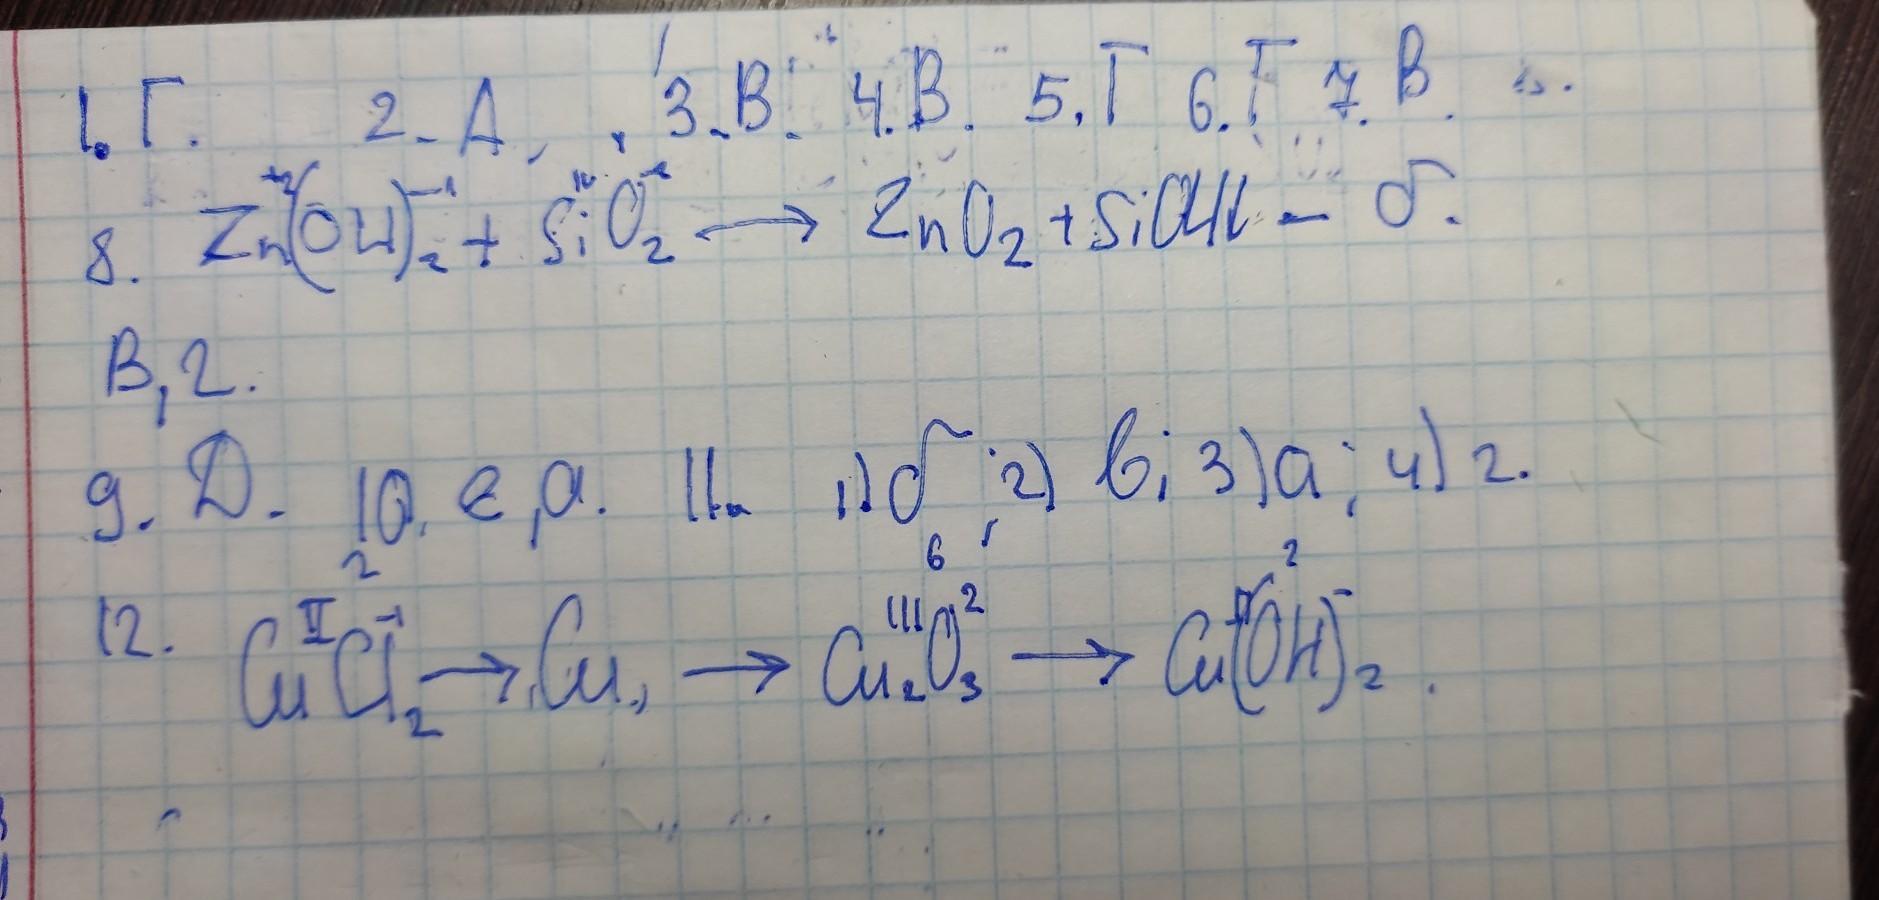 1. Г. 2. А, 3. В. 4. В. 5. Г 6. Г 7. В.
8. Zn⁺²(OH)₂⁻¹ + SiO₂⁻² → ZnO₂ + SiOH - б.
В, г.
9. Д. 10. е, а. 11. 1) б; 2) в; 3) а; 4) г.
12. CuᴵᴵCl₂⁻¹ → Cu, → Cu₂ᴵᴵᴵO₃² → Cu(OH)₂⁻.